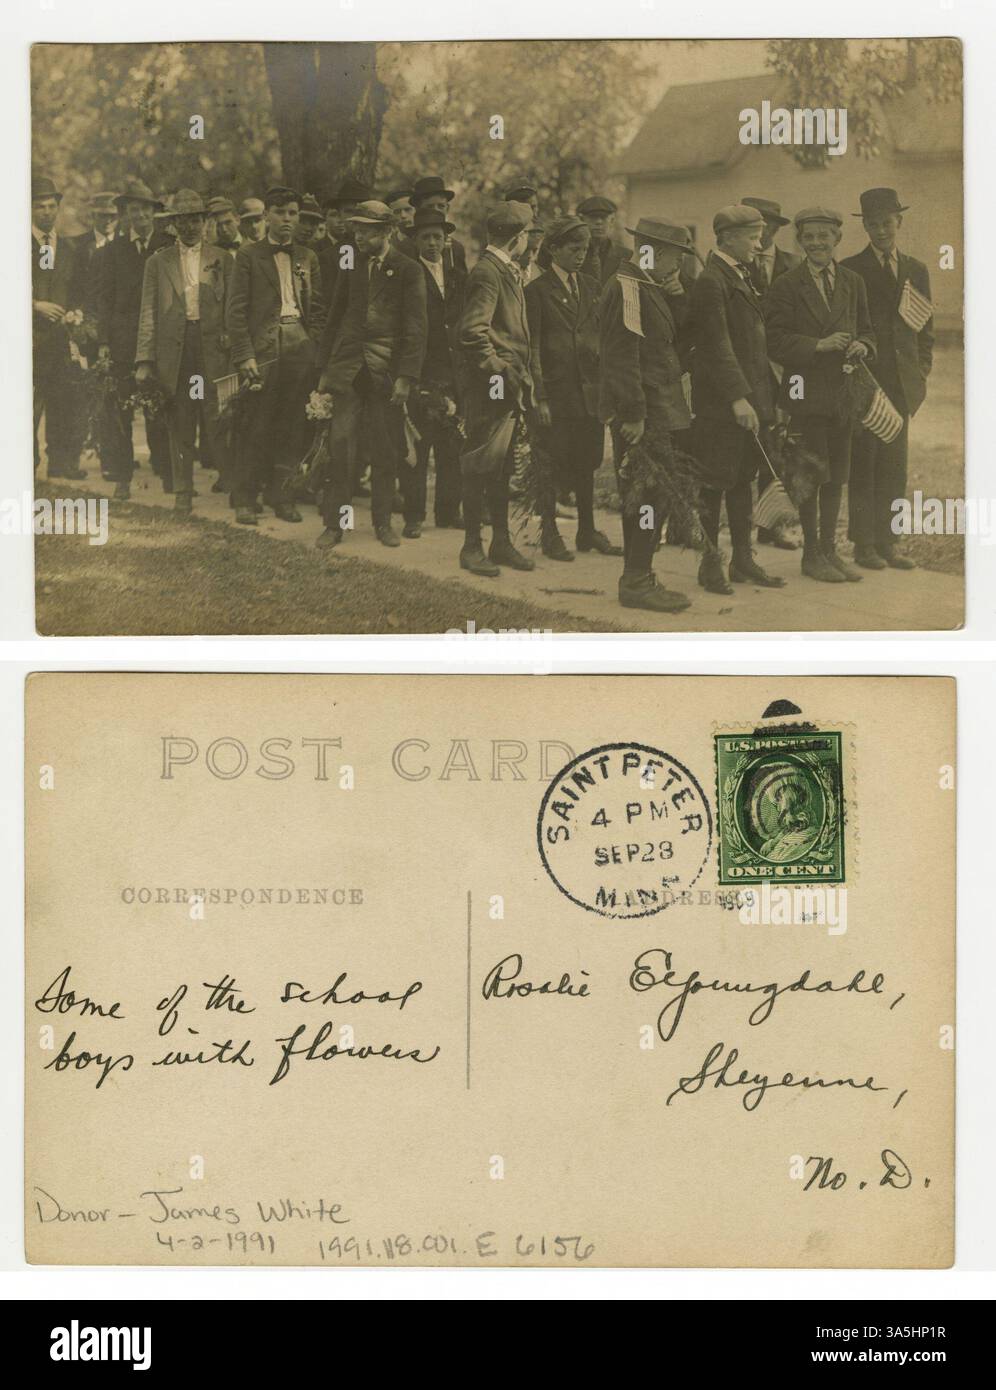 alamy
POST CARD
SAINT PETER
4 PM
SEP 28
MINN
U.S. POSTAGE
2
ONE CENT
CORRESPONDENCE
ADDRESS
Some of the school
boys with flowers
Rosalie Eljoungdahl,
Sheyenne,
No. D.
Donor - James White
4-2-1991 1991.118.001. E 6156
alamy
Image ID: 3A5HP1R
www.alamy.com